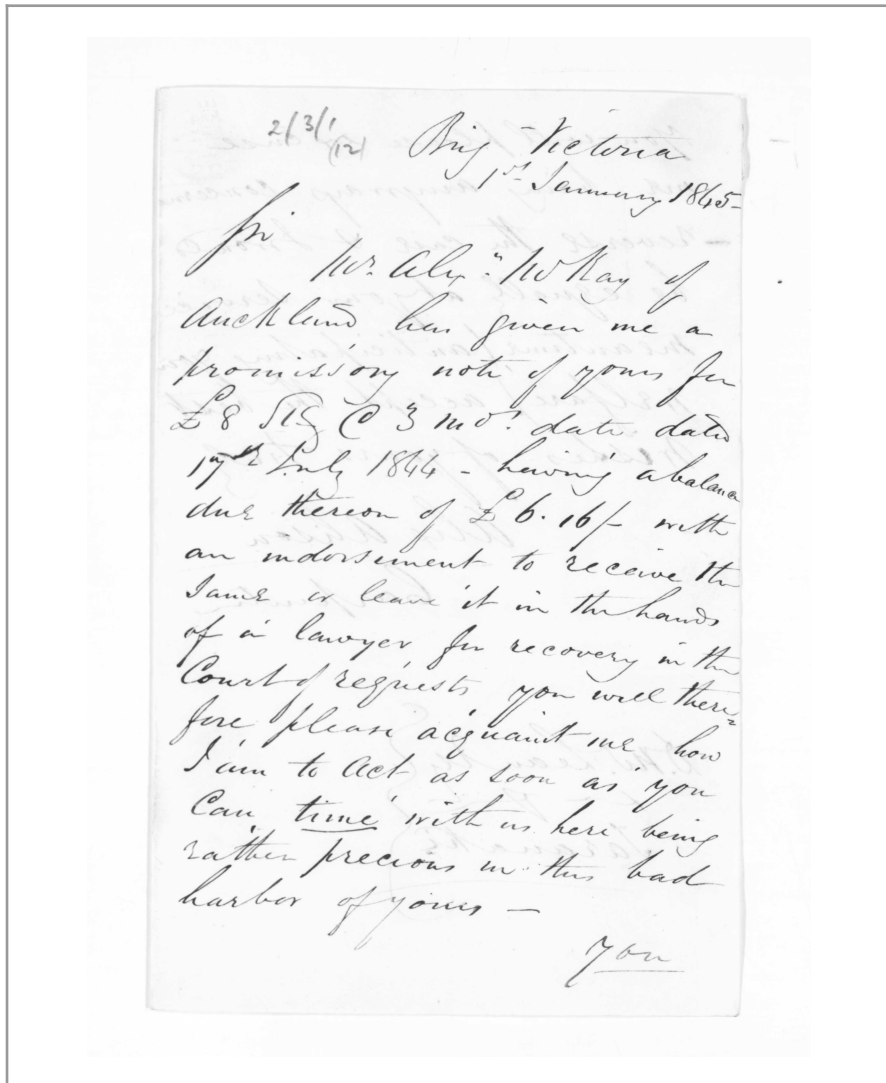 2/3/1
(12)
Brig Victoria
1st January 1845-
Sir
Mr. Alexr. McKay of
Auckland has given me a
promissory note of yours for
£8 Stg @ 3 mos. date dated
17th July 1844 - having a balance
due thereon of £6.16/- with
an indorsement to receive the
same or leave it in the hands
of a lawyer for recovery in the
Court of requests you will there=
fore please acquaint me how
I am to Act as soon as you
Can time with us here being
rather precious in this bad
harbor of yours —
you